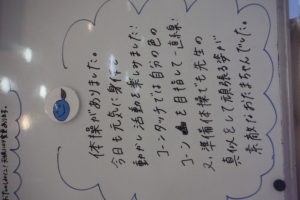 体操がありました。
今日も元気に身体を
動かし活動を楽しみました!
コーンタッチでは自分の色の
コーンを目指して一直線!
又、準備体操でも先生の
真似をして頑張る姿が
素敵なおたまちゃんでした。